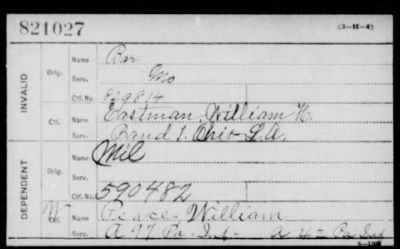 821027
(3-H-4)
INVALID
Orig.
Name Bar
Serv. Mo
Ctf. No. 829814
Ctf.
Name Eastman, William H.
Serv. Band 1. Ohio L.A.
DEPENDENT
Orig.
Name Mil
Serv.
Ctf. No. 590482
Ctf.
Name Peace William
Serv. A 97 Pa. Inf. A Pa Inf
6-1108